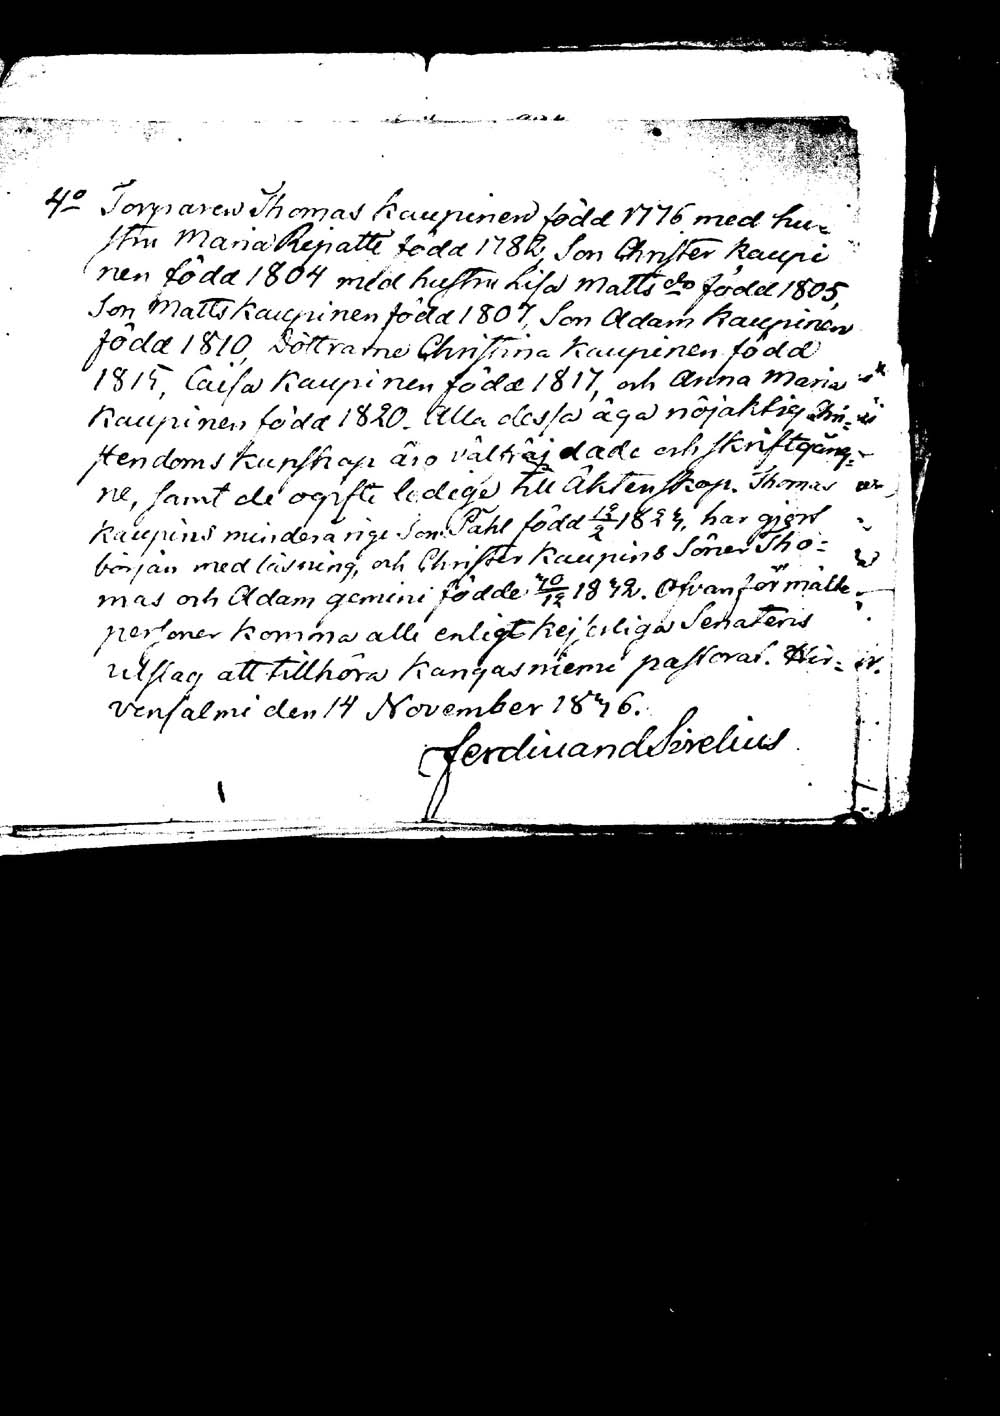 4o Torparen Thomas Kaupinen född 1776 med hu-
stru Maria Repatte född 1782, Son Christer Kaupi
nen född 1804 med hustru Lisa Mattsdo född 1805,
Son Matts Kaupinen född 1807, Son Adam Kaupinen
född 1810, Döttrarne Christina Kaupinen född
1815, Caisa Kaupinen född 1817, och Anna Maria
Kaupinen född 1820. Alla dessa äga nöjaktig Chri-
stendoms kunskap äro välfräjdade och skriftgång-
ne, samt de ogifte ledige till Äktenskap. Thomas
Kaupins minderårige Son Påhl född har gjort
början med läsning, och Christer Kaupins Söner Tho-
mas och Adam gemini födde Ofvanförmälte
personer komma alle enligt Kejserliga Senatens
utslag att tillhöra Kangasniemi pastorat. Hir-
vensalmi den 14 November
Ferdinand Sirelius